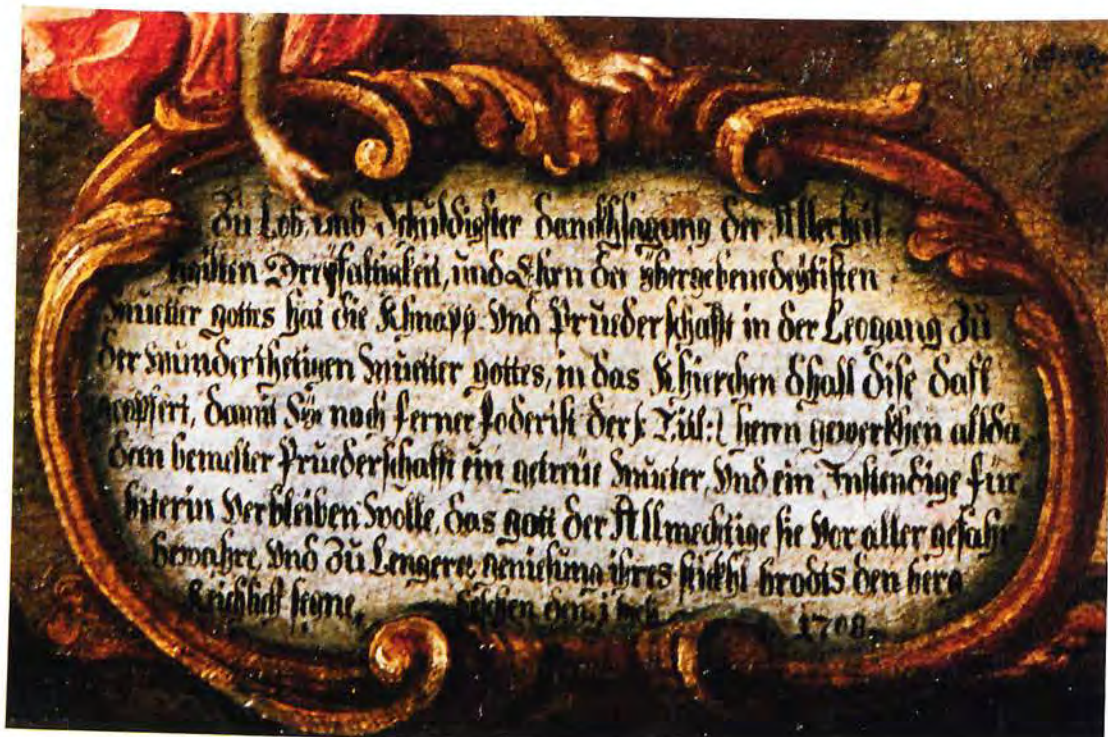 Zu Lob und Schuldigster danckhsagung der Allerheil
igisten Dreyfaltigkeit, und Ehrn der ybergebenedeytisten
Muetter gottes hat die Khnapp- Und Pruederschafft in der Leogang Zu
der Wunderthetigen Muetter gottes, in das Khirchen dhall dise dafl
geopfert, damit Sye noch ferner foderist der (: Titl: herrn gewerkhen alda
dem bemelter Pruederschafft ein getreue Mueter, Und ein Instendige für
biterin Verbleiben Wolle, das gott der Allmechtige sie Vor aller gefahr
bewahre, Und Zu Lengerer geniesung ihres stickhl brodts den berg
Reichlich segne, beschehen den, 1708